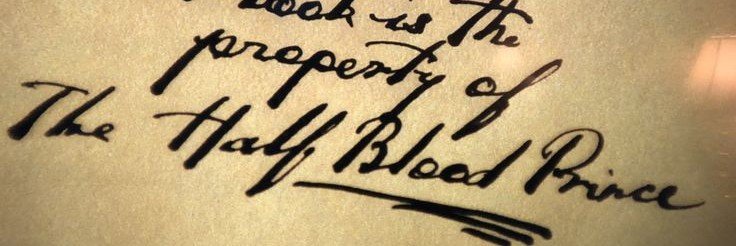 book is the
property of
The Half Blood Prince